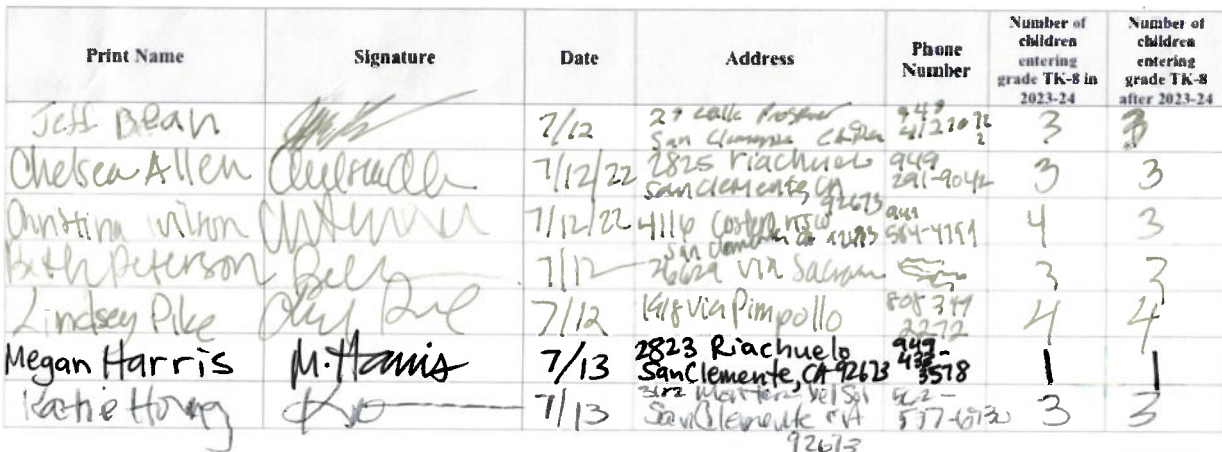 Print Name Signature Date Address Phone Number Number of children entering grade TK-8 in 2023-24 Number of children entering grade TK-8 after 2023-24
Jeff Bean 7/12 27 Calle San Clemente 949 3 3
Chelsea Allen 7/12/22 2825 Riachuelo San Clemente, CA 92673 949 291-9042 3 3
Christina Wilson 7/12/22 4116 San Clemente CA 949 4 3
Beth Peterson 7/12 Via 3 3
Lindsey Pike 7/12 Via Pimpollo 808 349 2272 4 4
Megan Harris M. Harris 7/13 2823 Riachuelo San Clemente, CA 92673 949- 3578 1 1
Katie 7/13 Del Sol San Clemente CA 92673 562- 3 3